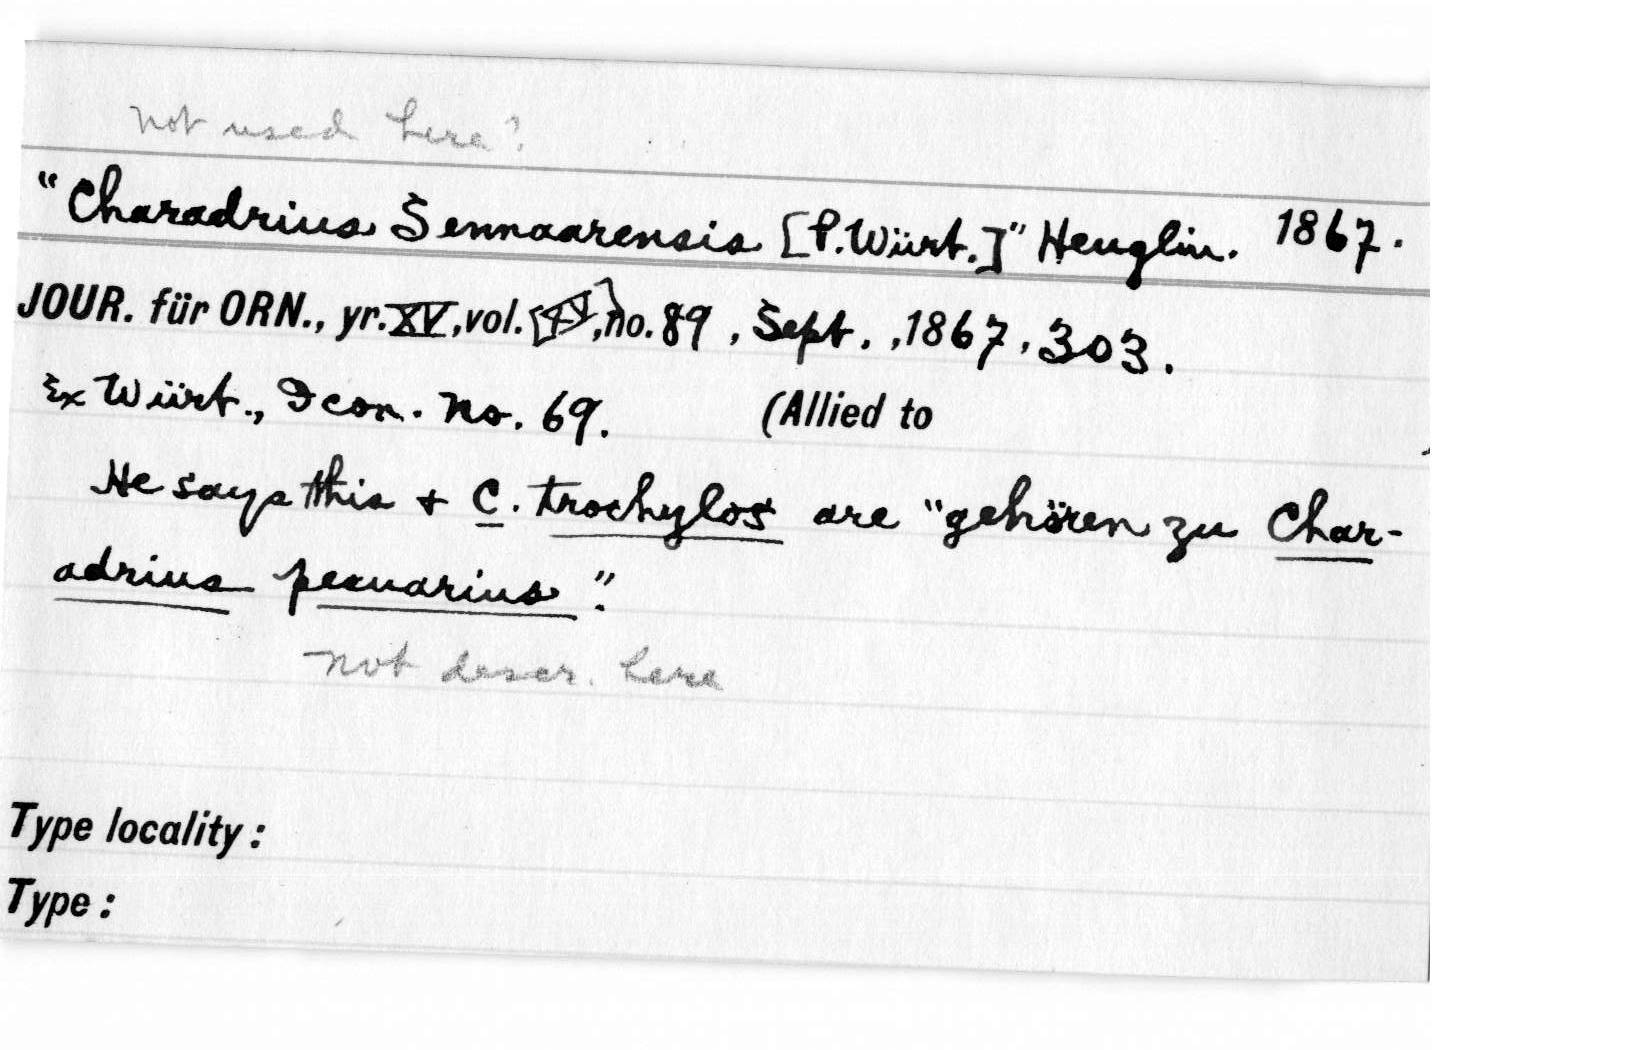 not used here?
"Charadrius Sennaarensis [P.Würt.]" Heuglin. 1867.
JOUR. für ORN., yr. XV, vol. [XV], no. 89, Sept., 1867, 303.
Ex Würt., Icon. no. 69. (Allied to )
He says this + C. trochylos are "gehören zu Char-
adrius pecuarius".
not descr. here
Type locality:
Type: